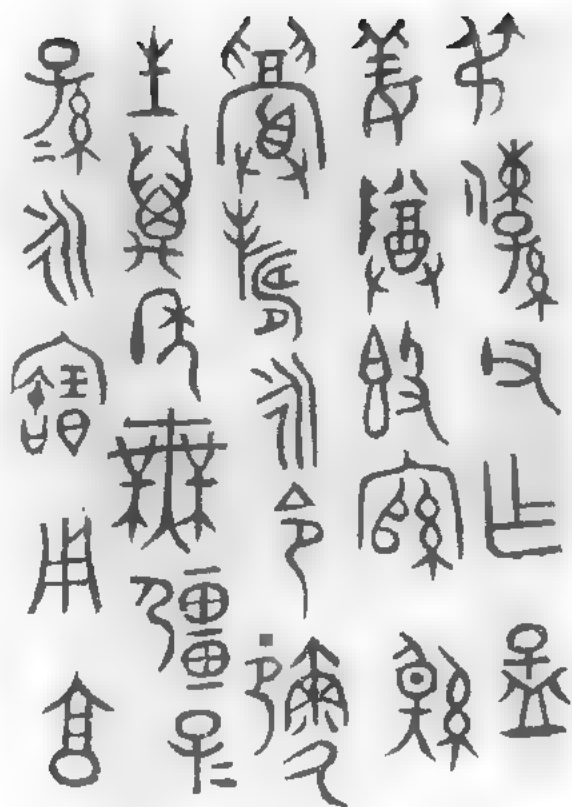 弔倲孫父乍孟
姜尊簋綰綽
眉壽永令彌氒
生萬年無疆子=
孫=永寶用享